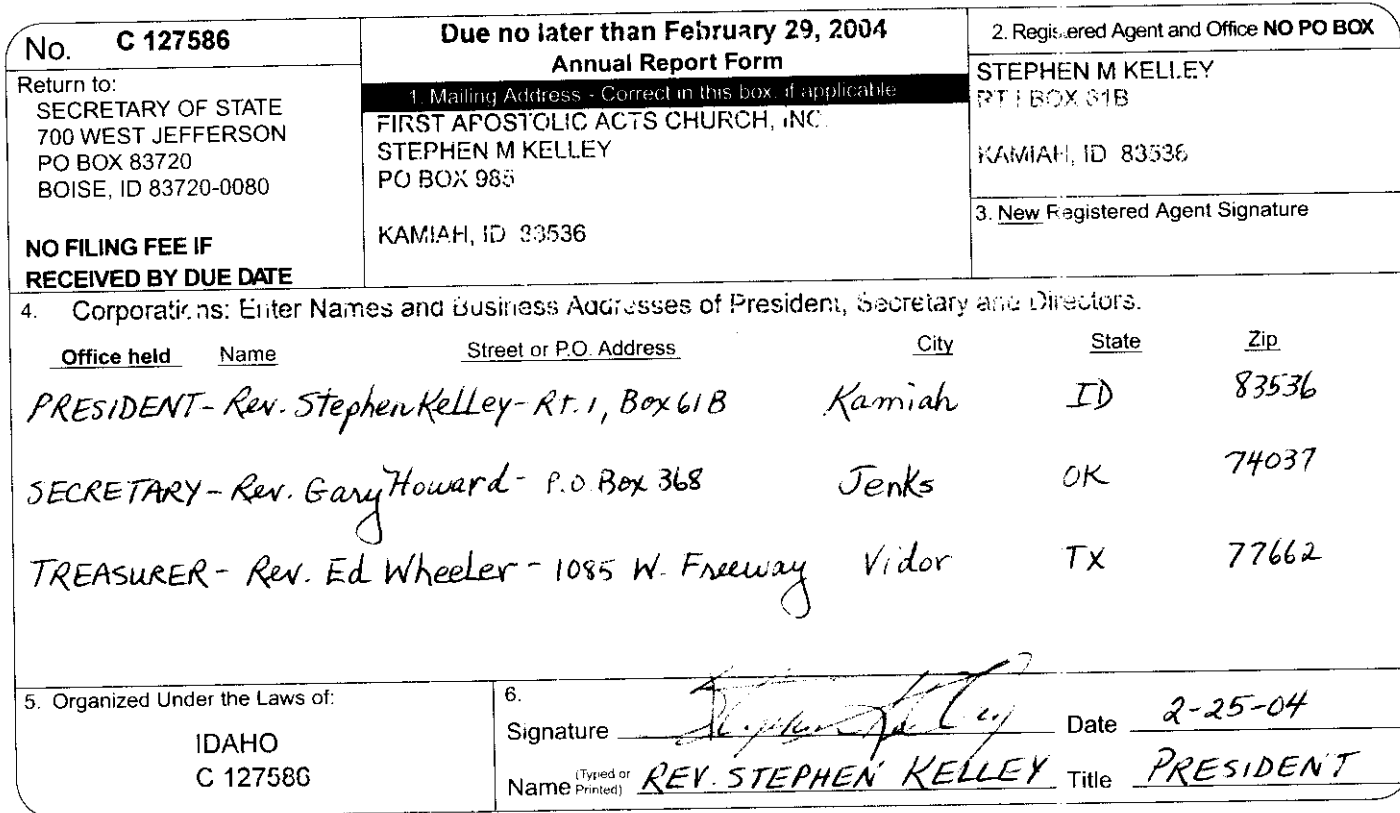 No. C 127586
Return to:
SECRETARY OF STATE
700 WEST JEFFERSON
PO BOX 83720
BOISE, ID 83720-0080
NO FILING FEE IF
RECEIVED BY DUE DATE
Due no later than February 29, 2004
Annual Report Form
1. Mailing Address - Correct in this box, if applicable
FIRST APOSTOLIC ACTS CHURCH, INC.
STEPHEN M KELLEY
PO BOX 985
KAMIAH, ID 83536
2. Registered Agent and Office NO PO BOX
STEPHEN M KELLEY
RT 1 BOX 61B
KAMIAH, ID 83536
3. New Registered Agent Signature
4. Corporations: Enter Names and Business Addresses of President, Secretary and Directors.
Office held Name Street or P.O. Address City State Zip
PRESIDENT - Rev. Stephen Kelley - Rt. 1, Box 61B Kamiah ID 83536
SECRETARY - Rev. Gary Howard - P.O Box 368 Jenks OK 74037
TREASURER - Rev. Ed Wheeler - 1085 W. Freeway Vidor TX 77662
5. Organized Under the Laws of:
IDAHO
C 127586
6.
Signature Stephen Kelley Date 2-25-04
Name (Typed or Printed) REV. STEPHEN KELLEY Title PRESIDENT